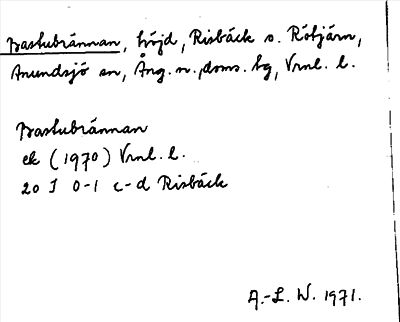 Bastubrännan, höjd, Risbäck o. Rötjärn,
Anundsjö sn, Ång. n., doms. bg, Vrnl. l.
Bastubrännan
ek (1970) Vrnl. l.
20 I 0-1 c-d Risbäck
A.-L. W. 1971.